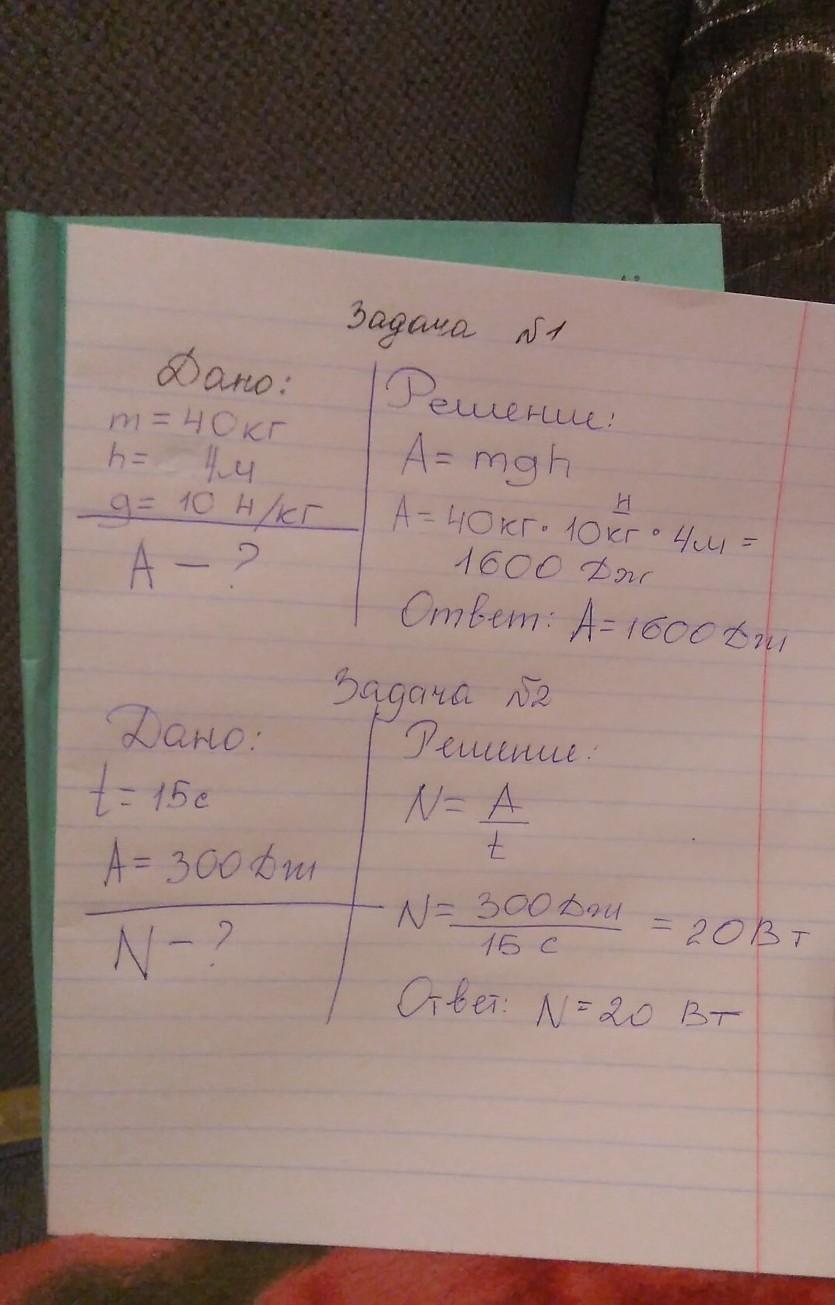 Задача №1
Дано:
m = 40кг
h = 4м
g = 10 Н/кг
A – ?
Решение:
A = mgh
A = 40кг · 10 Н/кг · 4м =
1600 Дж
Ответ: A = 1600 Дж
Задача №2
Дано:
t = 15с
A = 300 Дж
N – ?
Решение:
N = A/t
N = 300 Дж/15 с = 20 Вт
Ответ: N = 20 Вт